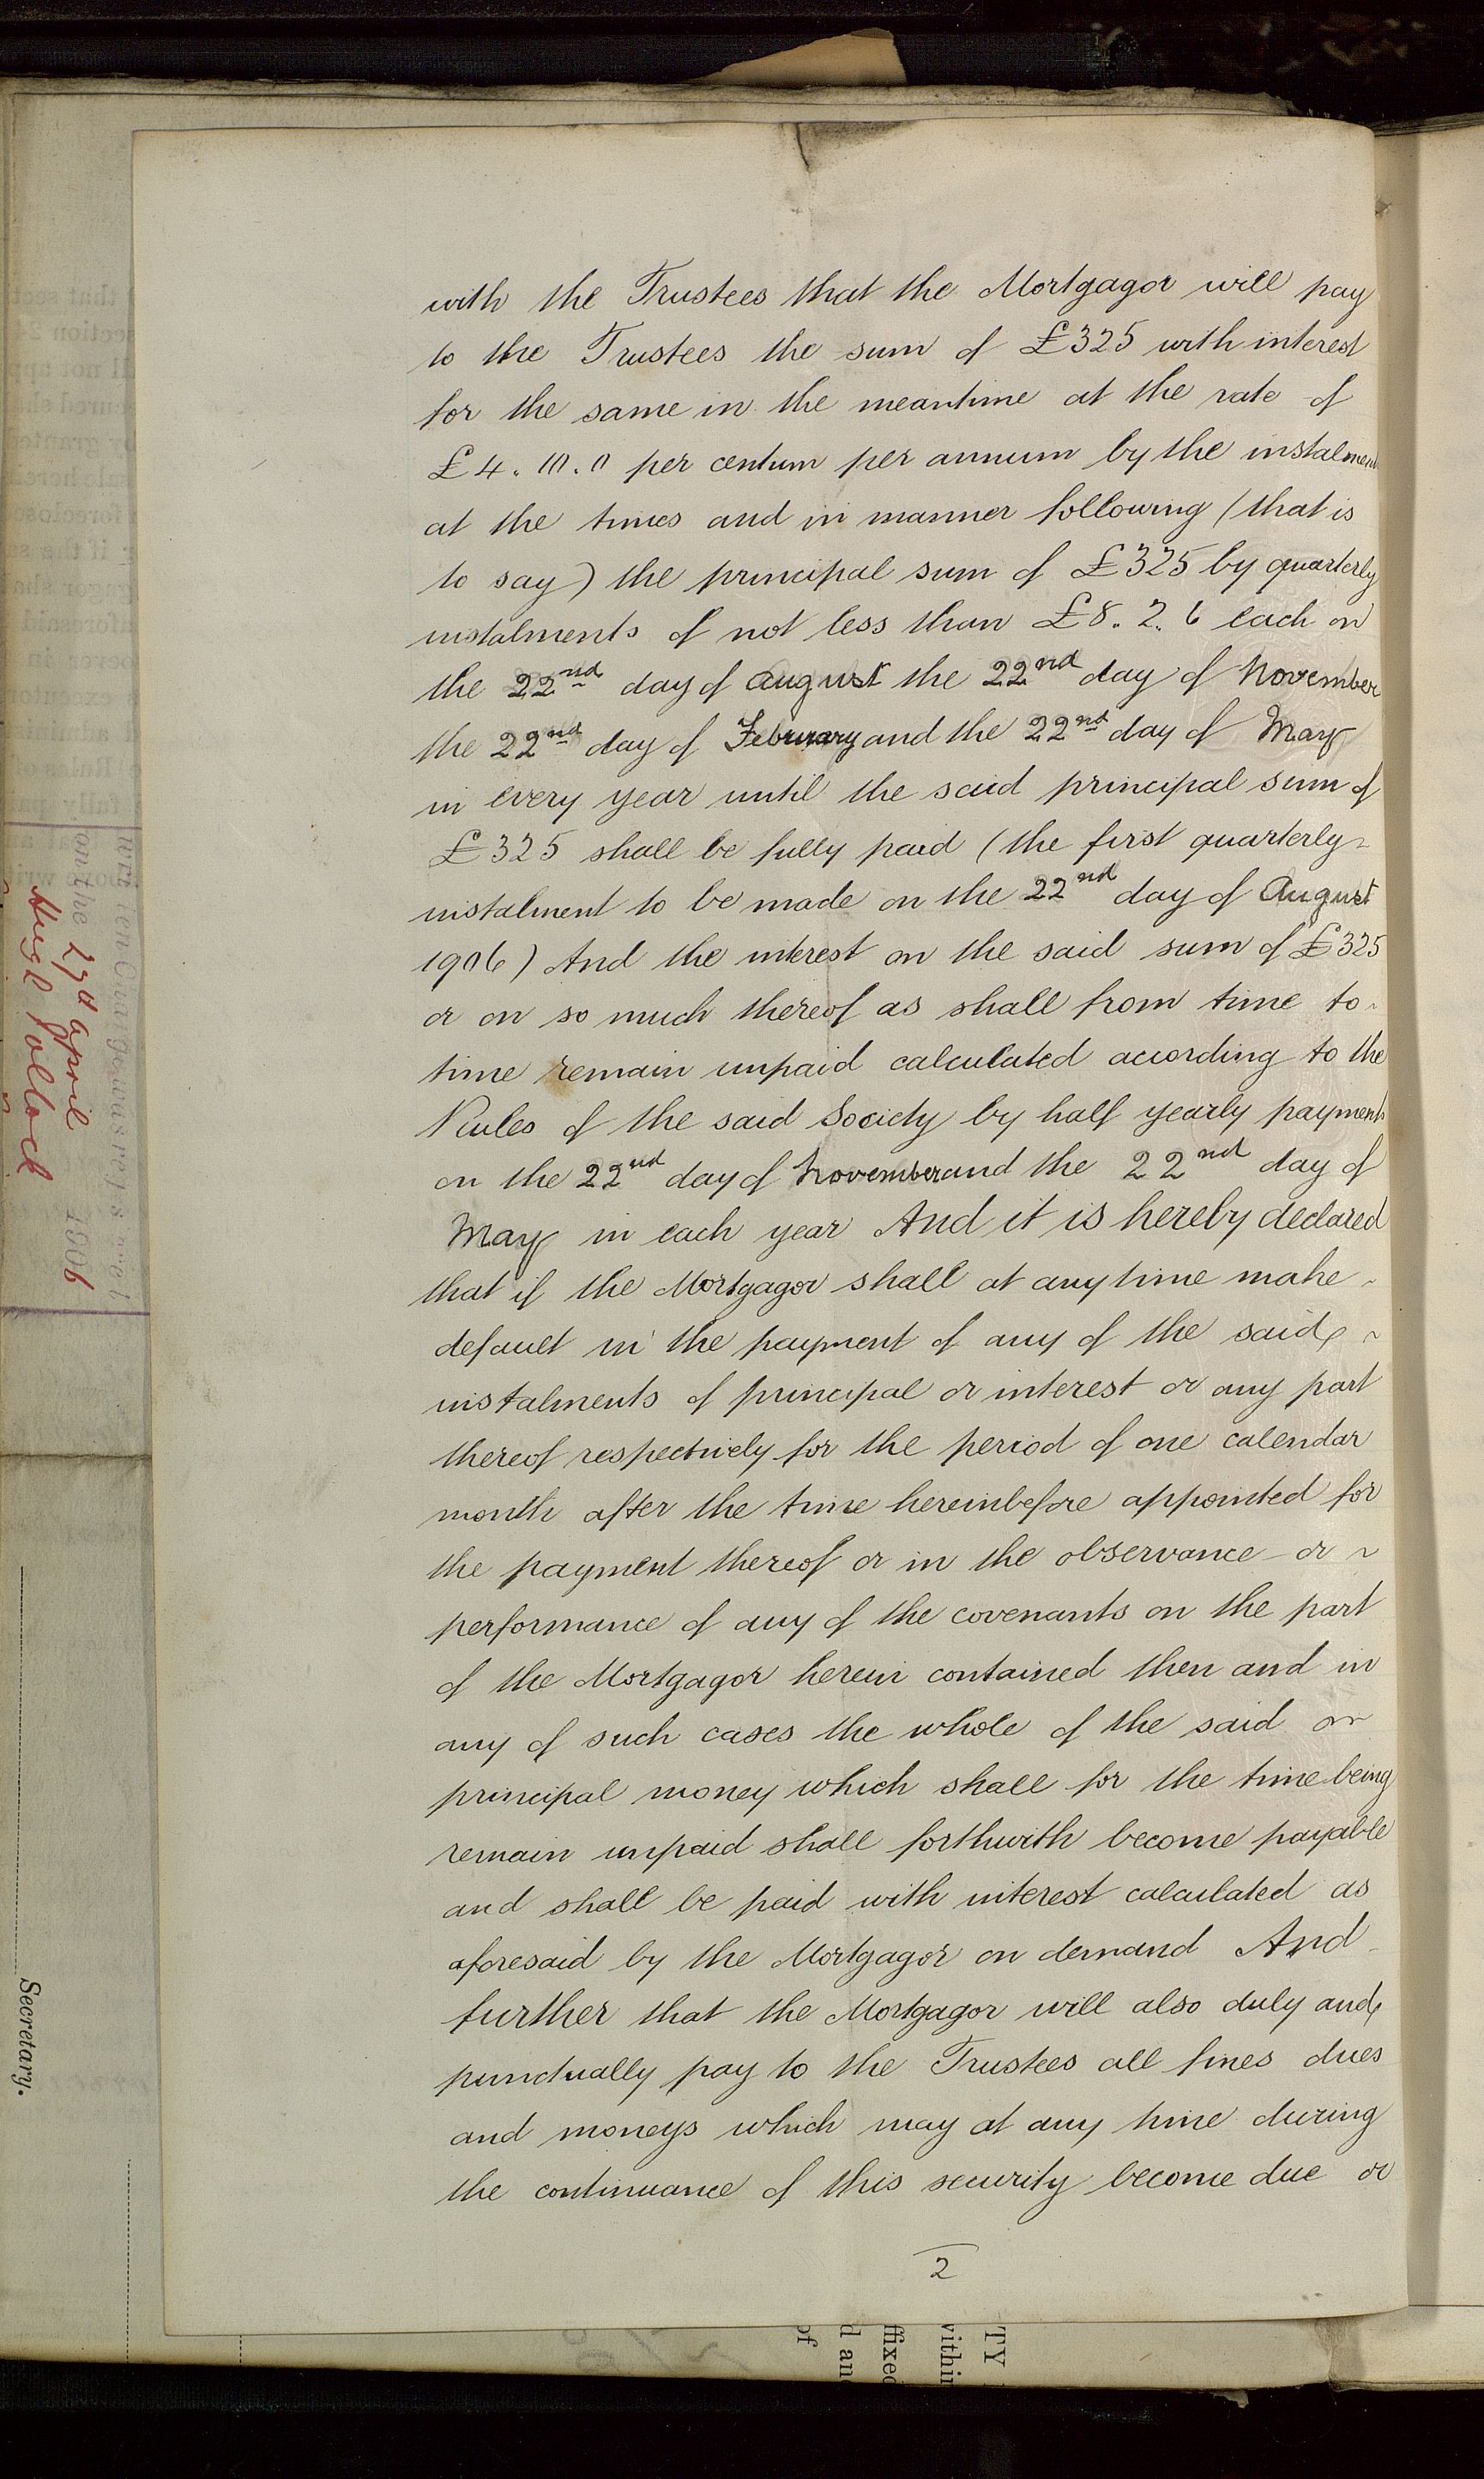 with the Trustees that the Mortgagor will pay
to the Trustees the sum of £325 with interest
for the same in the meantime at the rate of
£4. 10. 0 per centum per annum by the instalment
at the times and in manner following (that is
to say) the principal sum of £325 by quarterly
instalments of not less than £8. 2. 6 each on
the 22nd day of August the 22nd day of November
the 22nd day of February and the 22nd day of May
in every year until the said principal sum of
£325 shall be fully paid (the first quarterly
instalment to be made on the 22nd day of August
1906) And the interest on the said sum of £325
or on so much thereof as shall from time to
time remain unpaid calculated acording to the
Rules of the said Society by half yearly payments
on the 22nd day of November and the 22nd day of
May in each year And it is hereby declared
that if the Mortgagor shall at any time make
default in the payment of any of the said
instalments of principal or interest or any part
thereof respectively for the period of one calendar
month after the time hereinbefore appointed for
the payment thereof or in the observance or
performance of any of the covenants on the part
of the Mortgagor herein contained then and in
any of such cases the whole of the said
principal money which shall for the time being
remain unpaid shall forthwith become payable
and shall be paid with interest calculated as
aforesaid by the Mortgagor on demand And
further that the Mortgagor will also duly and
punctually pay to the Trustees all fines dues
and moneys which may at any time during
the continuance of this security become due or
2
on the 27th April 1906
Hugh Pollock
Secretary.
TY
within
ffixed
d and
of